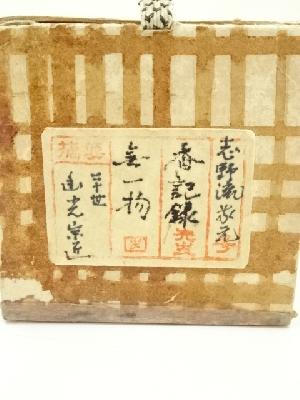 志野流家元
香記録
無一物
二十世
幽光宗匠